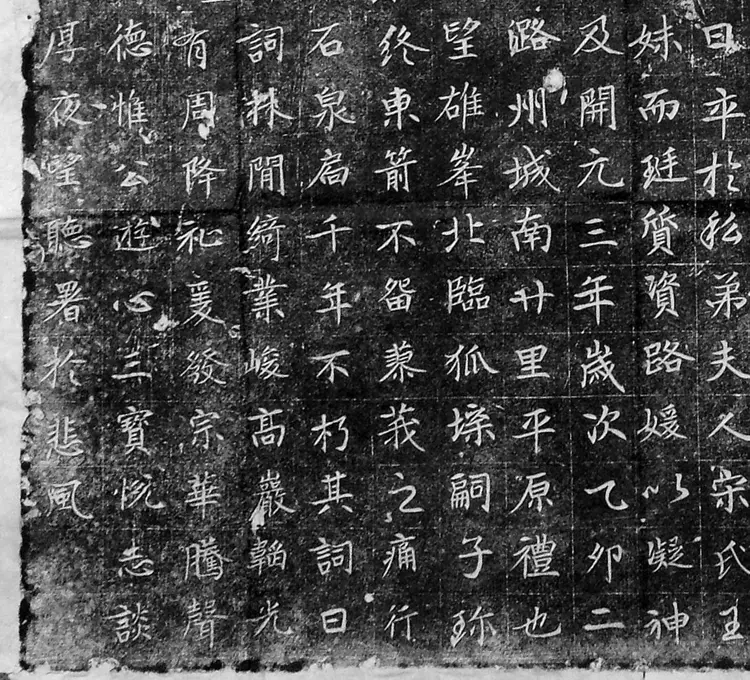 日卒於私弟夫人宗氏王
妹而珽質資路媛以凝神
及開元三年歲次乙卯二
潞州城南廿里平原禮也
望雄峯北臨狐堔嗣子珎
終東箭不留蓼莪之痛行
石泉扃千年不朽其詞曰
詞林閒綺業峻高巖韜光
有周降祉爰發宗華騰聲
德惟公遊心三寶悅志談
厚夜望聽署於悲風